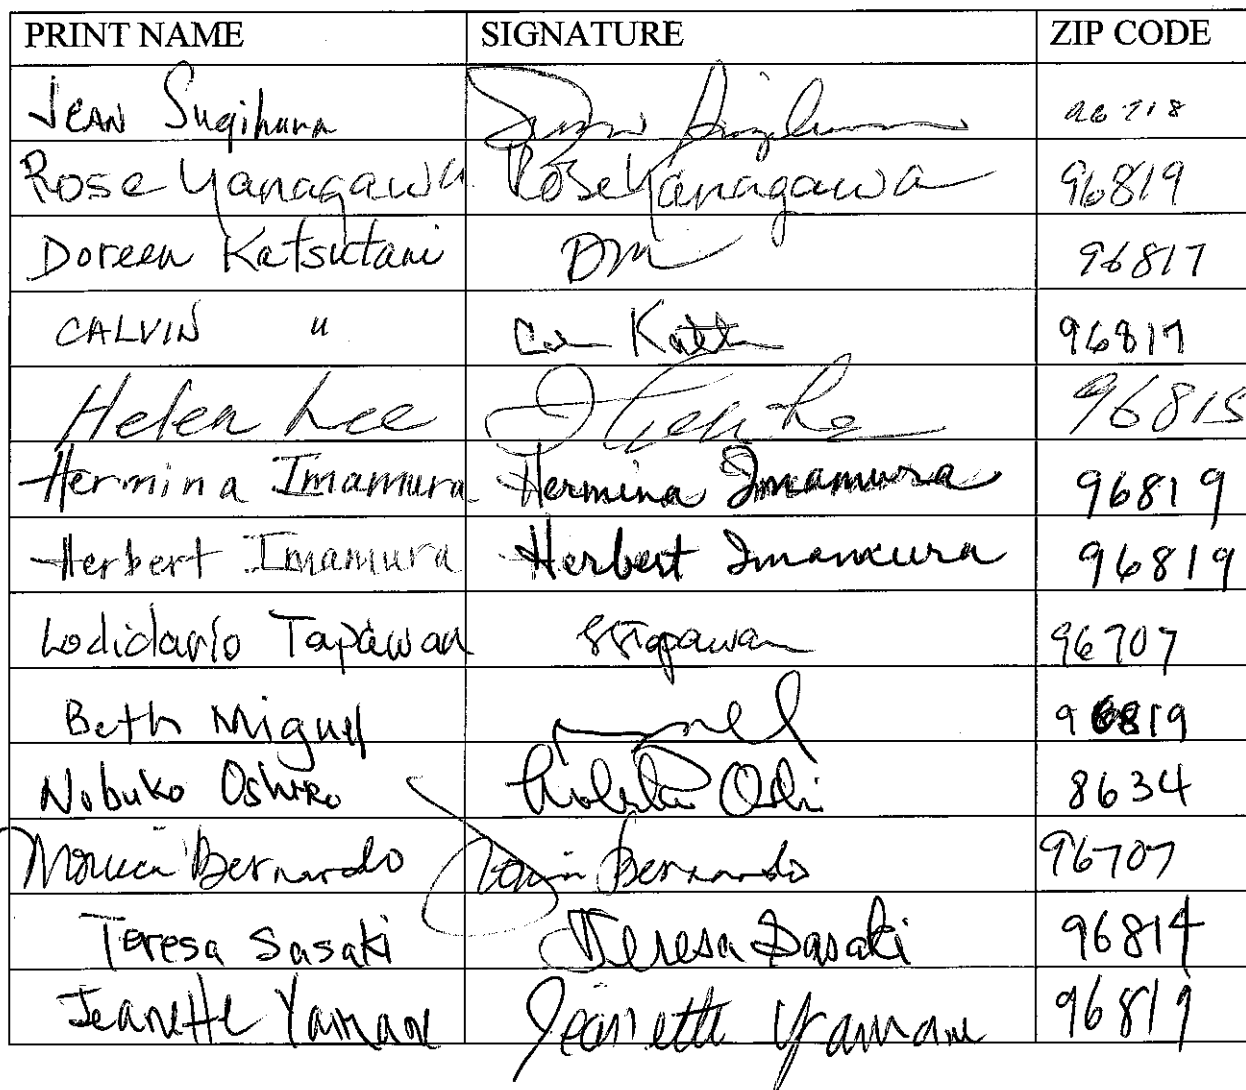 PRINT NAME SIGNATURE ZIP CODE
JEAN Sugihara
Rose Yanagawa Rose Yanagawa 96819
Doreen Katsutani DM 96817
CALVIN " 96817
Helen Lee 96815
Hermina Imamura Hermina Imamura 96819
Herbert Imamura Herbert Imamura 96819
Tapawan 96707
Beth Miguel 96819
Nobuko Oshiro 8634
Monica Bernardo Bernardo 96707
Teresa Sasaki Teresa Sasaki 96814
Jeanette Yamane Jeanette Yamane 96819